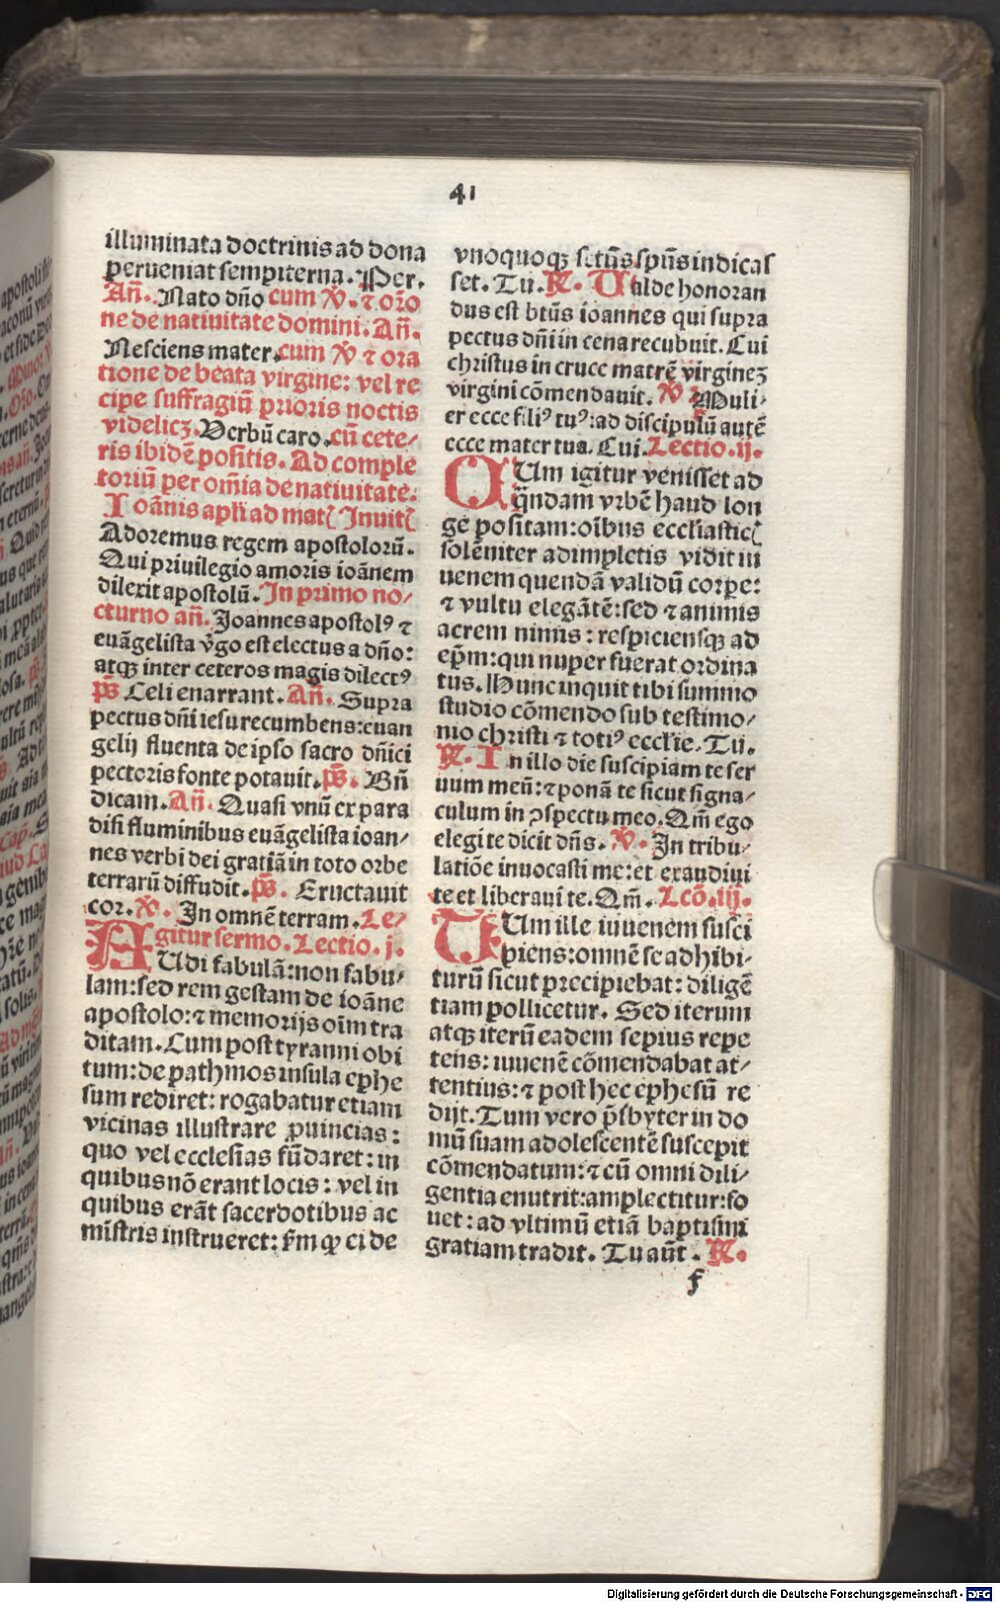 41
illuminata doctrinis ad dona
perueniat sempiterna. Per.
Añ. Nato dño cum ℣. ⁊ oro
ne de natiuitate domini. Añ.
Nesciens mater. cum ℣ ⁊ ora
tione de beata virgine: vel re
cipe suffragiū prioris noctis
videlicꝫ. Verbū caro. cū cete/
ris ibidē positis. Ad comple
toriū per om̄ia de natiuitate.
Ioānis apl̄i ad mat̄ Inuit̄
Adoremus regem apostolorū.
Qui priuilegio amoris ioānem
dilexit apostolū. In primo no/
cturno añ. Joannes apostolꝰ ⁊
euāgelista v̄go est electus a dño:
atqꝫ inter ceteros magis dilectꝰ
p̄s Celi enarrant. Añ. Supra
pectus dñi iesu recumbens: euan
gelij fluenta de ipso sacro dñici
pectoris fonte potauit. p̄s. Bñ
dicam. Añ. Quasi vnū ex para
disi fluminibus euāgelista ioan/
nes verbi dei gratiā in toto orbe
terrarū diffudit. p̄s. Eructauit
cor. ℣. In omnē terram. Le/
gitur sermo. Lectio. j.
AUdi fabulā: non fabu/
lam: sed rem gestam de ioāne
apostolo: ⁊ memorijs oīm tra
ditam. Cum post tyranni obi
tum: de pathmos insula ephe
sum rediret: rogabatur etiam
vicinas illustrare ꝓuincias:
quo vel ecclesias fūdaret: in
quibus nō erant locis: vel in
quibus erāt sacerdotibus ac
mīstris instrueret: s̄m ꝙ ei de
vnoquoqꝫ sctūs spūs indicas
set. Tu. ℟. Ualde honoran
dus est btūs ioannes qui supra
pectus dñi in cena recubuit. Cui
christus in cruce matrē virgineꝫ
virgini cōmendauit. ℣ Muli/
er ecce filiꝰ tuꝰ: ad discipulū autē
ecce mater tua. Cui. Lectio. ij.
QUm igitur venisset ad
q̄ndam vrbē haud lon
ge positam: oībus eccl̄iastic̄
solēniter adimpletis vidit iu
uenem quendā validū corpe:
⁊ vultu elegātē: sed ⁊ animis
acrem nimis: respiciensqꝫ ad
ep̄m: qui nuper fuerat ordina
tus. Hunc inquit tibi summo
studio cōmendo sub testimo/
nio christi ⁊ totiꝰ eccl̄ie. Tu.
℟. In illo die suscipiam te ser
uum meū: ⁊ ponā te sicut signa/
culum in ꝯspectu meo. Qm̄ ego
elegi te dicit dñs. ℣. In tribu/
latiōe inuocasti me: et exaudiui
te et liberaui te. Qm̄. Lcō. iij.
TUm ille iuuenem susci
piens: omnē se adhibi/
turū sicut precipiebat: diligē
tiam pollicetur. Sed iterum
atqꝫ iterū eadem sepius repe
tens: iuuenē cōmendabat at/
tentius: ⁊ post hec ephesū re
dijt. Tum vero p̄sbyter in do
mū suam adolescentē suscepit
cōmendatum: ⁊ cū omni dili/
gentia enutrit: amplectitur: fo
uet: ad vltimū etiā baptismi
gratiam tradit. Tu aūt. ℟.
f
Digitalisierung gefördert durch die Deutsche Forschungsgemeinschaft - DFG